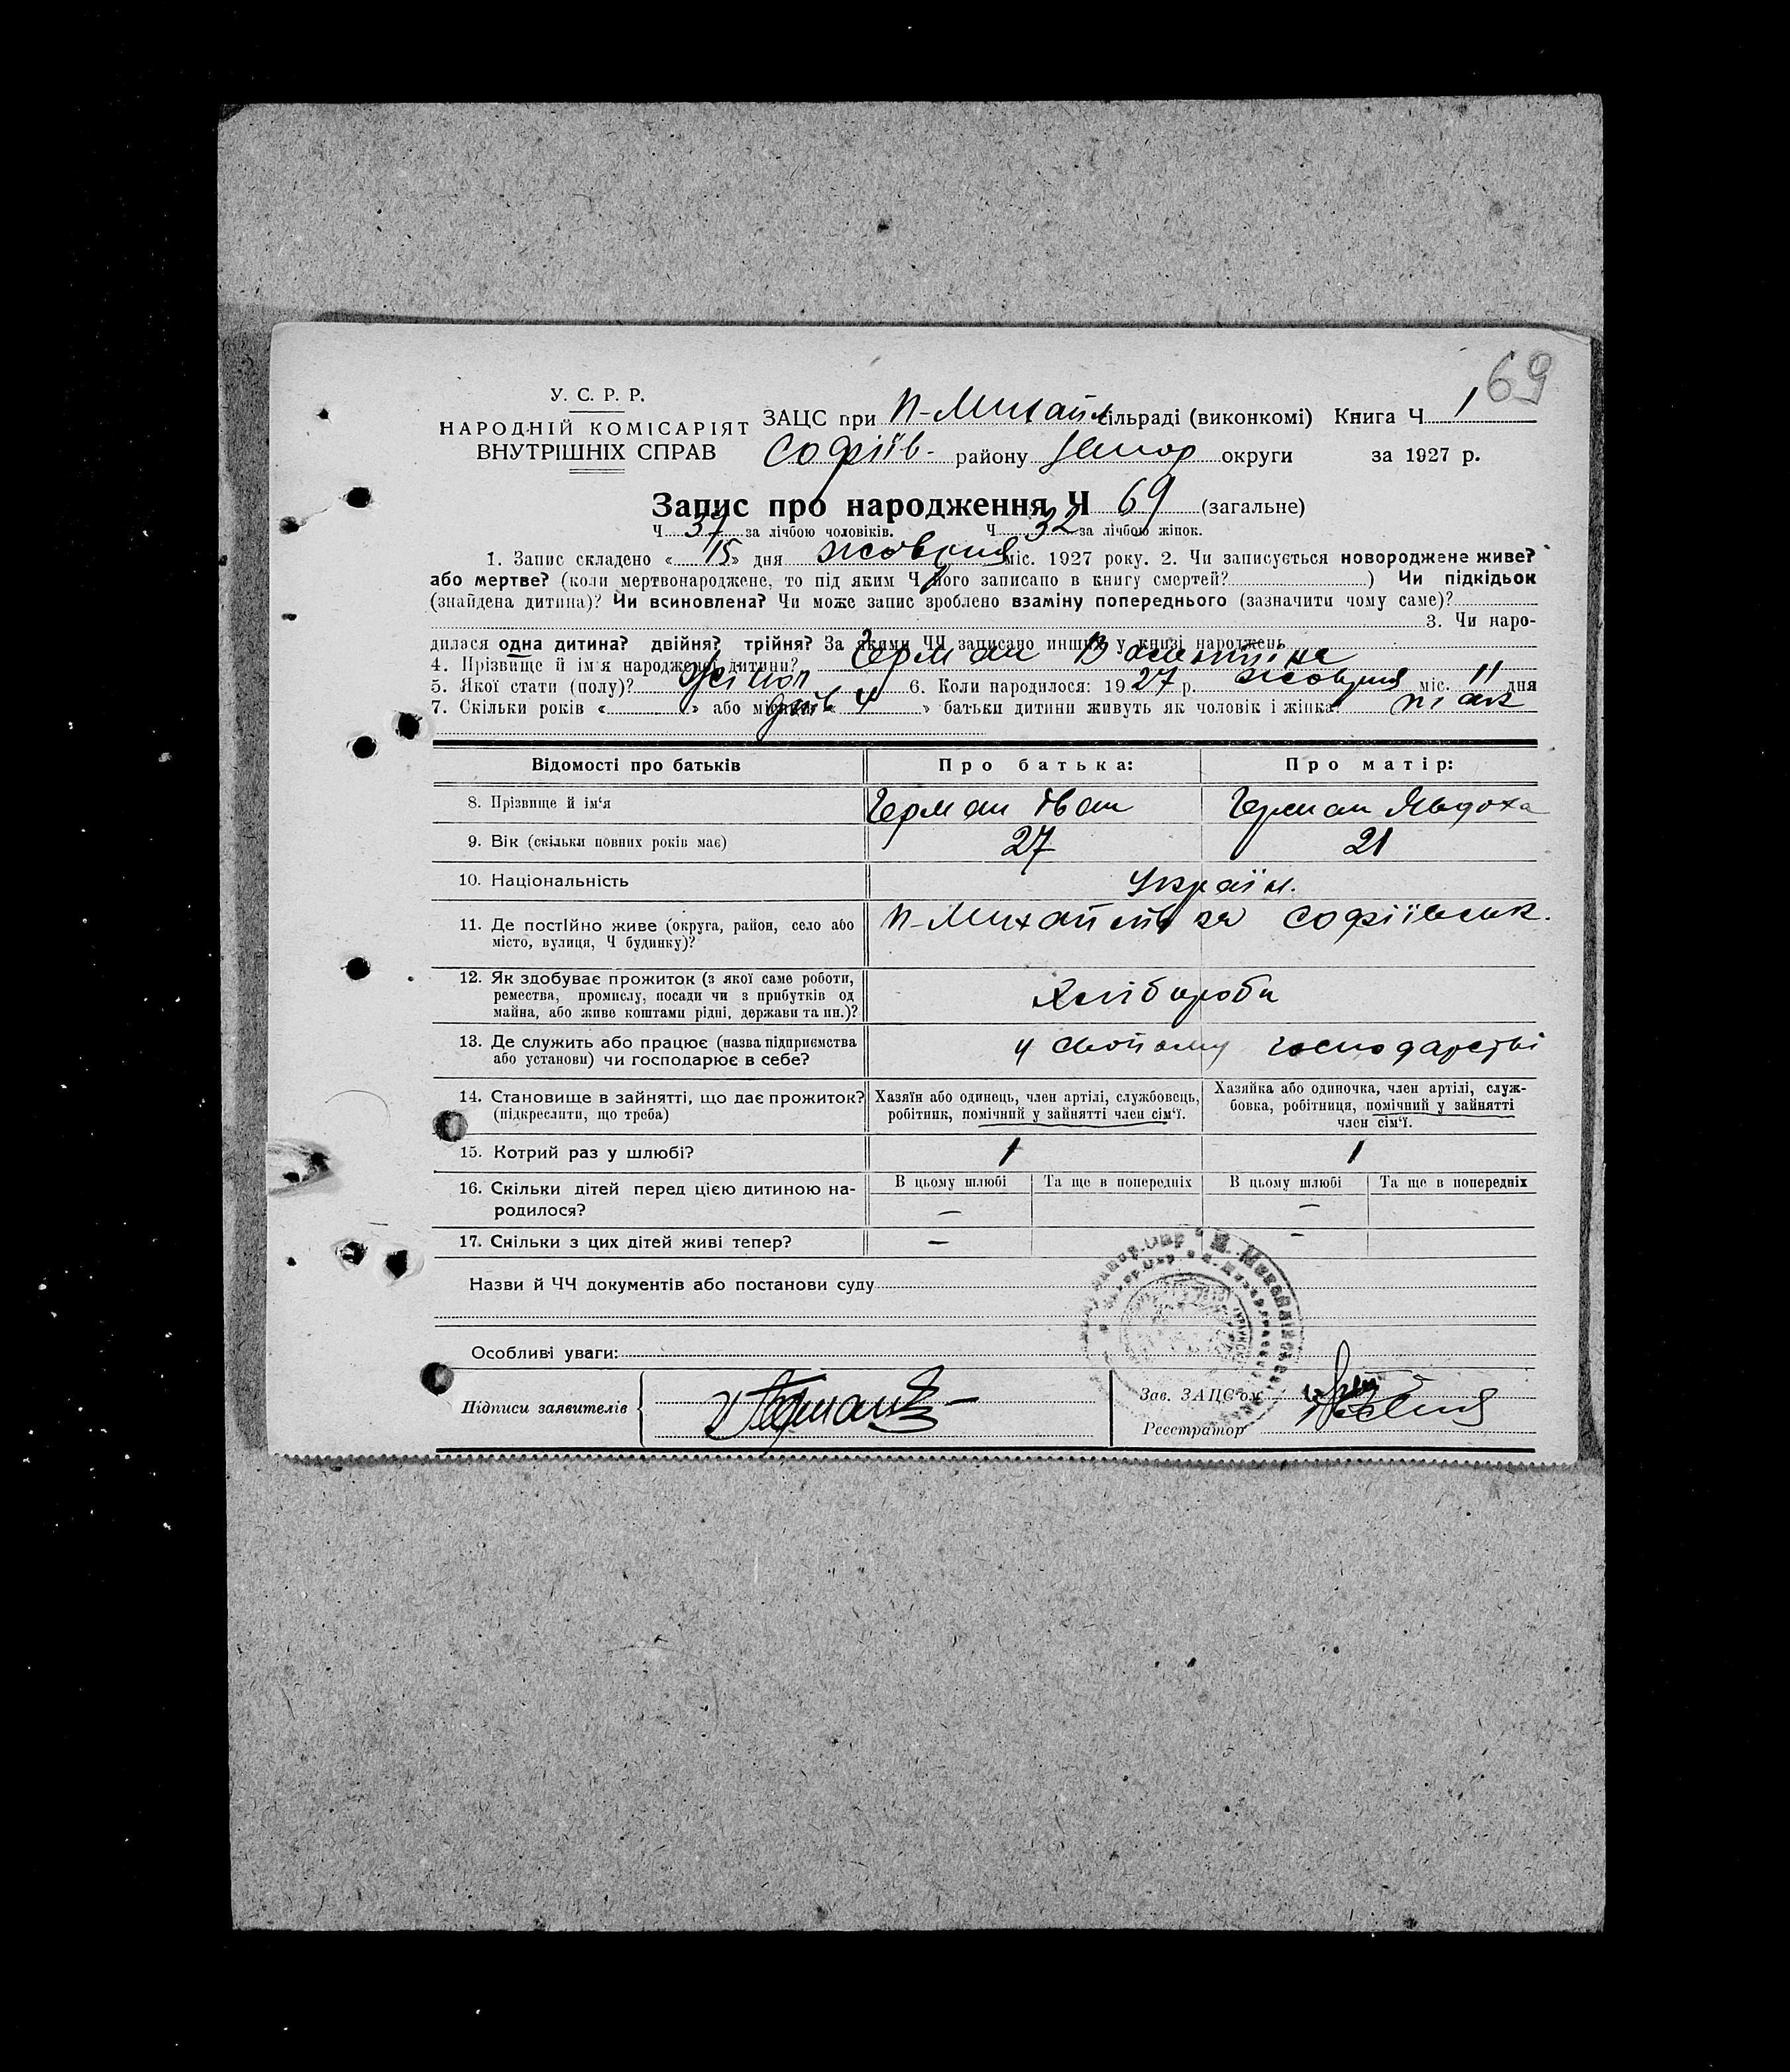 69
У. С. Р. Р.
НАРОДНІЙ КОМІСАРІЯТ
ВНУТРІШНІХ СПРАВ
ЗАЦС при П-Михайл сільраді (виконкомі) Книга Ч 1
Софіїв- району Запор округи за 1927 р.
Запис про народження Ч 69 (загальне)
Ч 37 за лічбою чоловіків. Ч 32 за лічбою жінок.
1. Запис складено «15» дня жовтня міс. 1927 року. 2. Чи записується новороджене живе?
або мертве? (коли мертвонароджене, то під яким Ч його записано в книгу смертей? ) Чи підкідьок
(знайдена дитина)? Чи всиновлена? Чи може запис зроблено взаміну попереднього (зазначити чому саме)?
3. Чи наро-
дилася одна дитина? двійня? трійня? За якими ЧЧ записано инших у книзі народжень
4. Прізвище й ім'я народженої дитини? Герман Валентіна
5. Якої статі (полу)? Жіноч 6. Коли народилося: 1927 р. жовтня міс. 11 дня
7. Скільки років « » або місяців « 4 » батьки дитини живуть як чоловік і жінка?
Відомості про батьків
Про батька:
Про матір:
8. Прізвище й ім‘я Герман Іван Герман Явдоха
9. Вік (скільки повних років має) 27 21
10. Національність Україн.
11. Де постійно живе (округа, район, село або П-Михайлівка Софіївськ.
місто, вулиця, Ч будинку)?
12. Як здобуває прожиток (з якої саме роботи,
ремества, промислу, посади чи з прибутків од Хлібороби
майна, або живе коштами рідні, держави та ин.)?
13. Де служить або працює (назва підприємства у свойому господарстві
або установи) чи господарює в себе?
14. Становище в зайнятті, що дає прожиток?
(підкреслити, що треба)
Хазяїн або одинець, член артілі, службовець,
робітник, помічний у зайнятті член сім‘ї.
Хазяйка або одиночка, член артілі, служ-
бовка, робітниця, помічний у зайнятті
член сім‘ї.
15. Котрий раз у шлюбі? 1 1
16. Скільки дітей перед цією дитиною на-
родилося?
В цьому шлюбі Та ще в попередніх В цьому шлюбі Та ще в попередніх
— —
17. Скільки з цих дітей живі тепер? — —
Назви й ЧЧ документів або постанови суду
Особливі уваги:
Підписи заявителів
Зав. ЗАЦС'ом
Реєстратор